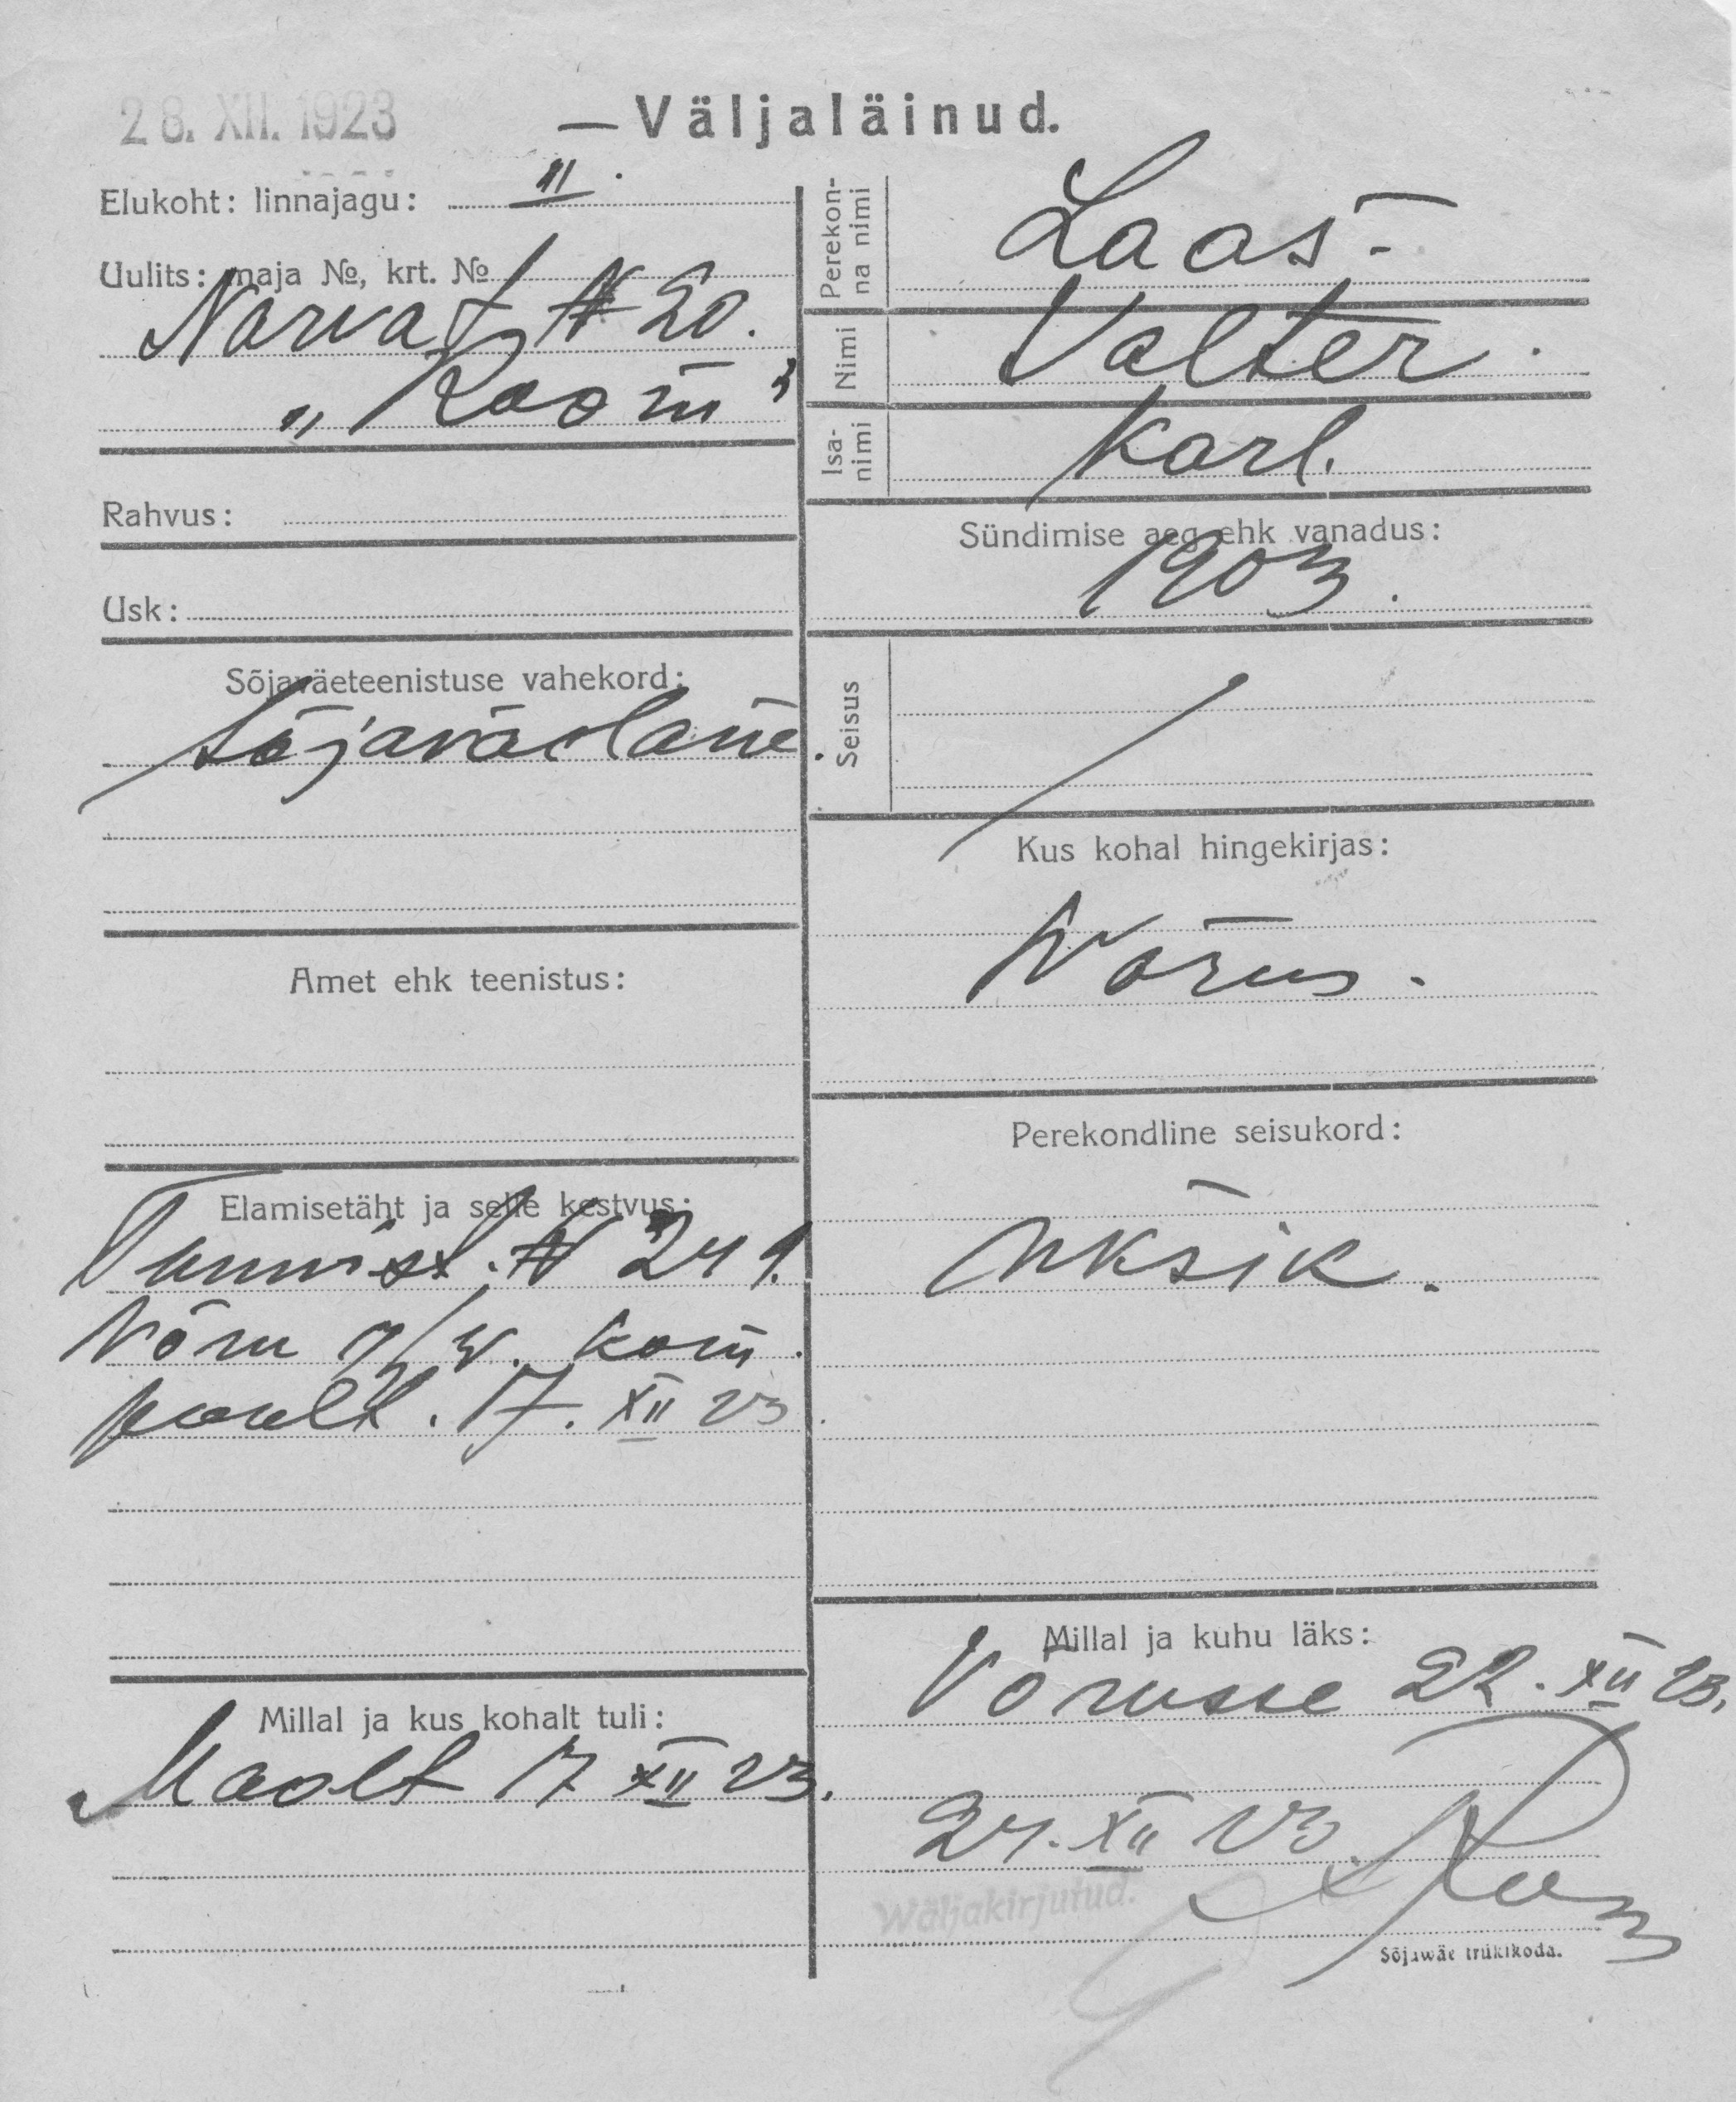 28. XII. 1923
— Väljaläinud.
Elukoht: linnajagu: II.
Uulits: maja №, krt. №
Narva t № 20.
„Room"
Rahvus:
Usk:
Sõjaväeteenistuse vahekord:
Sõjaväelane.
Amet ehk teenistus:
Elamisetäht ja selle kestvus:
Tunnist. № 241.
Võru kom.
poolt. 17. XII 23.
Millal ja kus kohalt tuli:
Maalt 17 XII 23.
Perekonna nimi
Laas
Nimi
Valter.
Isanimi
Karl.
Sündimise aeg ehk vanadus:
1903.
Seisus
Kus kohal hingekirjas:
Võrus.
Perekondline seisukord:
üksik.
Millal ja kuhu läks:
Võrusse 22. XII 23.
24. XII 23.
Wäljakirjutud.
Sõjawäe trükikoda.